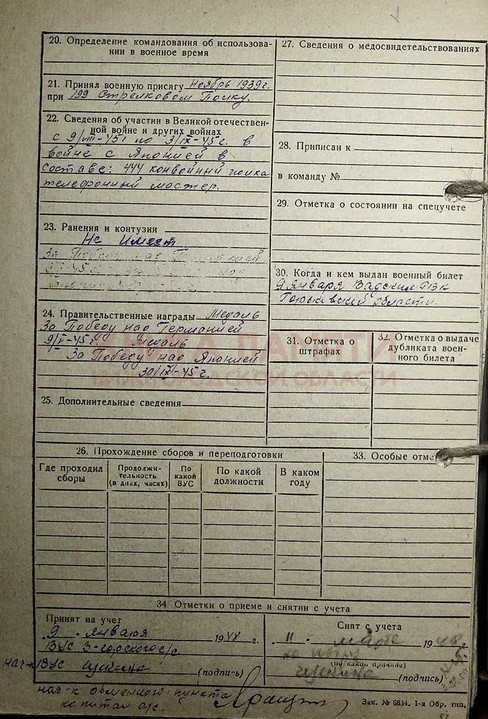 20. Определение командования об использова-
нии в военное время
21. Принял военную присягу Ноябрь 1939 г.
при 199 Стрелковом Полку.
22. Сведения об участии в Великой отечествен-
ной войне и других войнах
с 9/VIII-45 г по 3/IX-45 г. в
войне с Японией в
составе: 444 конвойный полка
телефонный мастер.
23. Ранения и контузии
Не Имеет
24. Правительственные награды Медаль
За Победу над Германией
9/V-45 г. Медаль
За Победу над Японией
30/IX-45 г.
25. Дополнительные сведения
26. Прохождение сборов и переподготовки
Где проходил сборы
Продолжи-
тельность
(в днях, часах)
По какой ВУС
По какой должности
В каком году
27. Сведения о медосвидетельствованиях
28. Приписан к
в команду №
29. Отметка о состоянии на спецучете
30. Когда и кем выдан военный билет
9 Января Вадским РВК
Горьковской области.
31. Отметка о штрафах
32. Отметка о выдаче
дубликата воен-
ного билета
33. Особые отме
34. Отметки о приеме и снятии с учета
Принят на учет
9 Января 19 г.
ВУС
(подпись)
Снят с учета
11 19
(по какой причине)
(подпись)
нач-к обменного пункта
капитан а/с.
Зак. № 6834. 1-я Обр. тип.
ПАМЯТИ
ОБЛАСТИ